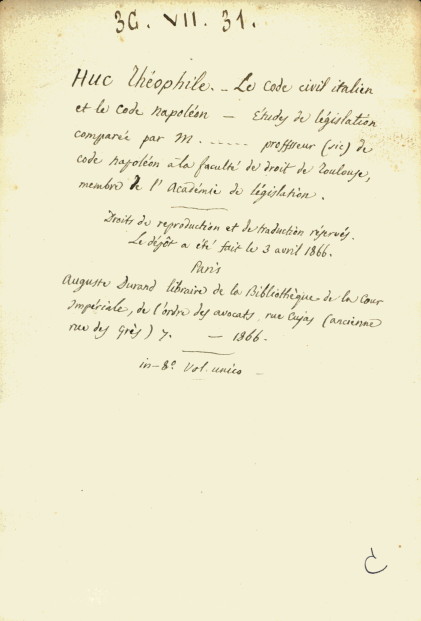 3G. VII. 31.
Huc Théophile. – Le Code civil italien
et le Code Napoléon – Études de législation
comparée par M. ..... proffseur (sic) de
code napoléon à la faculté de droit de Toulouse,
membre de l'Académie de législation.
Droits de reproduction et de traduction réservés.
Le dépôt a été fait le 3 avril 1866.
Paris
Auguste Durand libraire de la Bibliothèque de la Cour
Impériale, de l'ordre des avocats. rue Cujas (ancienne
rue des Grès) 7. – 1866.
in-8° Vol. unico –